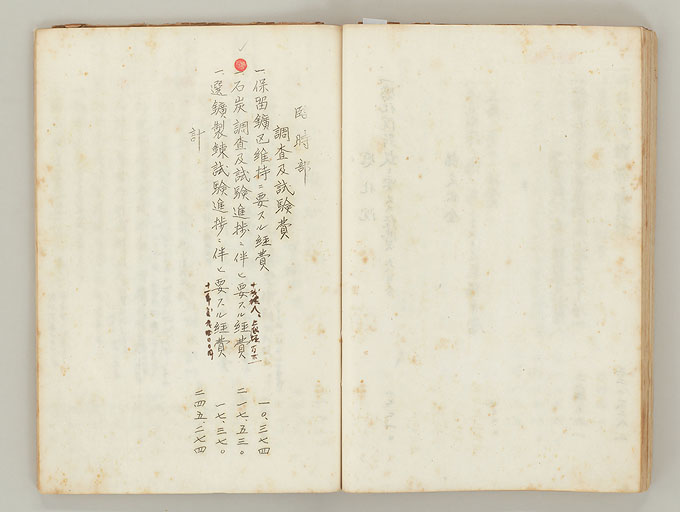 臨時部
調査及試験費
一、保留鑛区維持ニ要スル経費 一〇、三七四
一、石炭調査及試験進捗ニ伴ヒ要スル経費 二一七、五三〇
一、選鑛製錬試験進捗ニ伴ヒ要スル経費 一七、三七〇
計 二四五、二七四